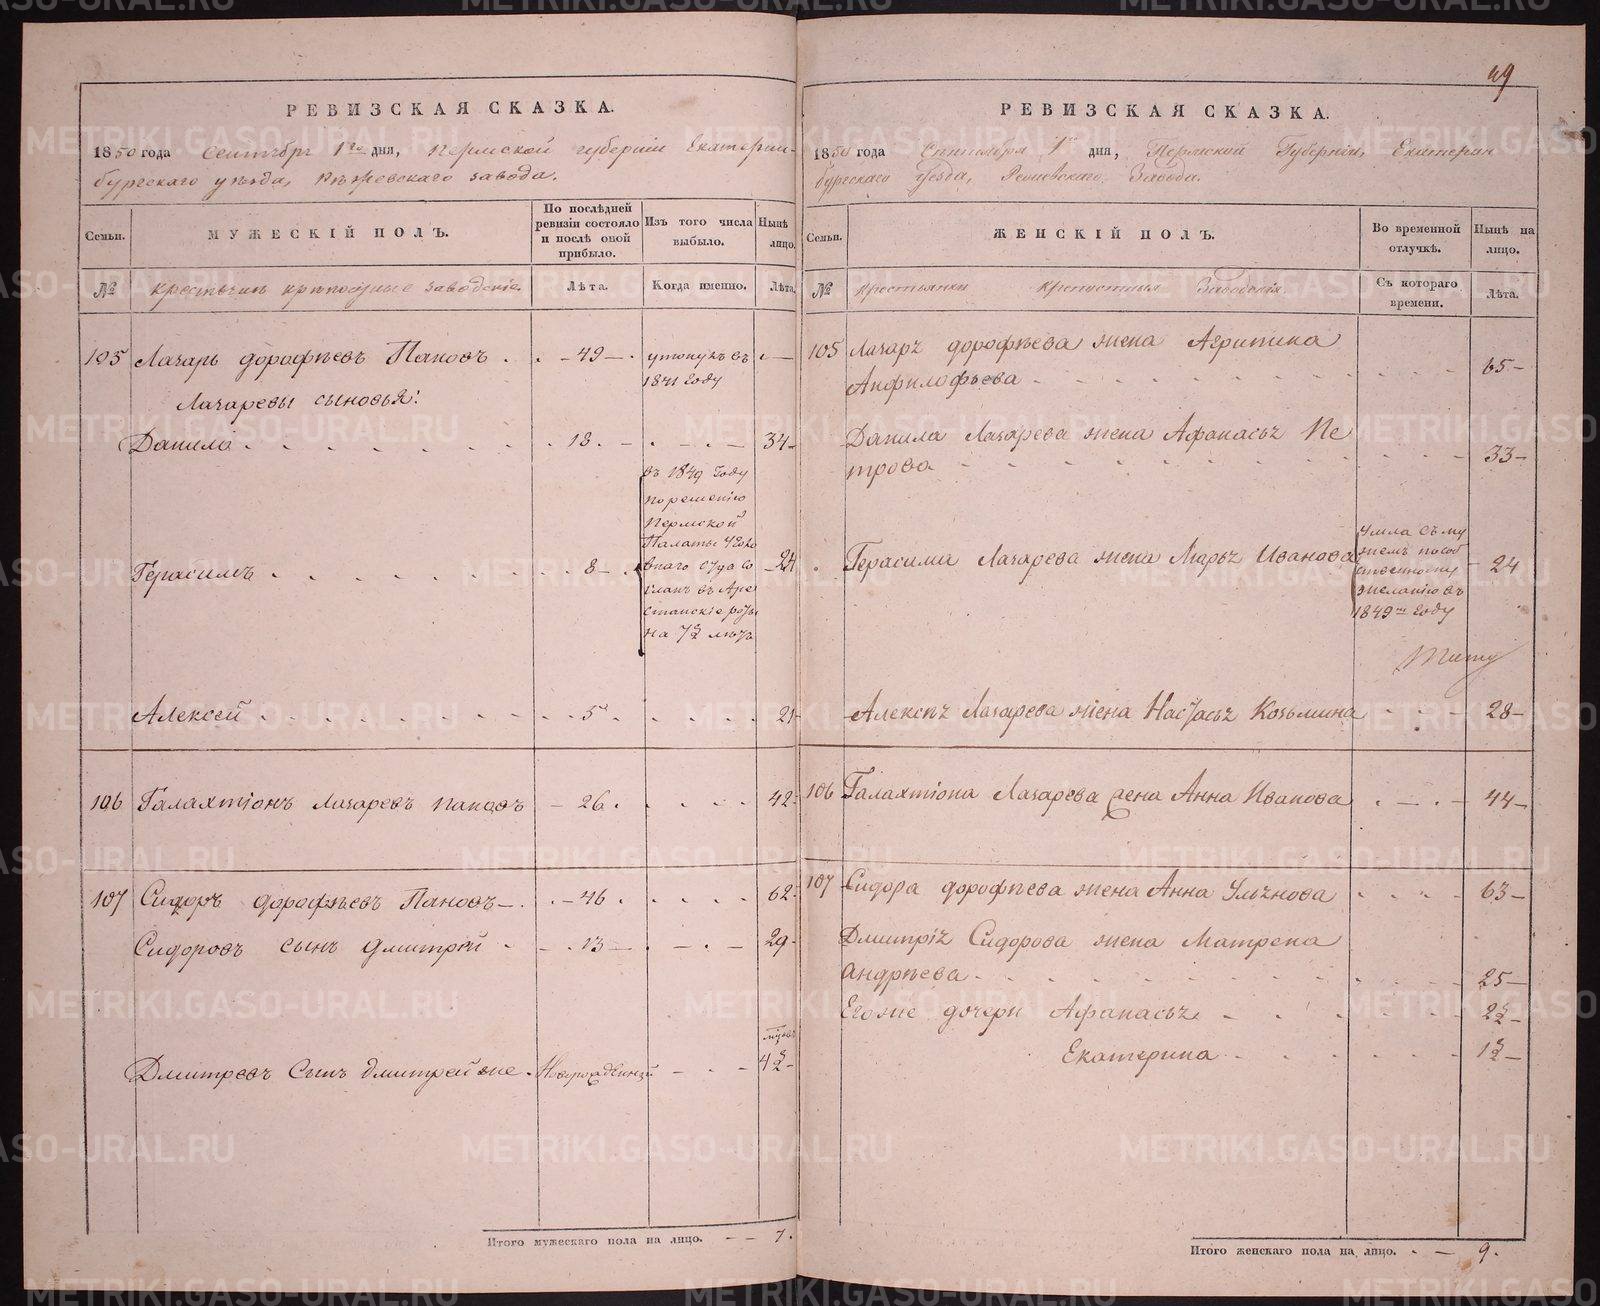 49
РЕВИЗСКАЯ СКАЗКА.
1850 года Сентября 1го дня, Пермской губернiи Екатерин-
бургскаго уѣзда, Рѣжевскаго завода.
Семьи.
МУЖЕСКIЙ ПОЛЪ.
По послѣдней
ревизiи состояло
и послѣ оной
прибыло.
Изъ того числа
выбыло.
Нынѣ
лицо.
№
Крестьяне крѣпостные заводскiе
Лѣта.
Когда именно.
Лѣта.
105 Лазарь дорофѣевъ Пановъ . . – 49 – . утонулъ въ . –
1841 году
Лазаревы сыновья:
Данило . 18. – . – . – 34 –
въ 1849 году
по решенiю
Пермской
Палаты Уголо
внаго суда со
сланъ въ Аре
станскiе роты
на 7½ лѣтъ
Герасимъ . 8 – . – 24
Алексей . 5 . 21
106 Галахтiонъ Лазаревъ Пановъ – 26 . 42
107 Сидоръ дорофѣевъ Пановъ – . . – 46 . 62
Сидоровъ сынъ дмитрей . – . 13 – . – . – 29
Дмитревъ Сынъ дмитрей же . Новорожденный – . . 4½ –
Итого мужескаго пола на лицо. – – 7.
РЕВИЗСКАЯ СКАЗКА.
1850 года Сентября 1го дня, Пермской Губернiи, Екатерин
бургскаго уезда, Режевскаго Завода.
Семьи.
ЖЕНСКIЙ ПОЛЪ.
Во временной
отлучкѣ.
Нынѣ на
лицо.
№
Крестьянки Крепостныя Заводскiя
Съ котораго
времени.
Лѣта.
105 Лазаря дорофѣева жена Агрипина
Анфилофьева 65 –
Данила Лазарева жена Афанасья Пе
трова 33 –
. Герасима Лазарева жена Марья Иванова 24
Ушла съ му
жемъ по соб
ственному
желанiю въ
1849м году
Алексея Лазарева жена Настасья Козьмина 28 –
106 Галахтiона Лазарева жена Анна Иванова . – . – 44 –
107 Сидора дорофѣева жена Анна Ульянова 63 –
Дмитрiя Сидорова жена Матрена
андрѣева 25 –
Егоже дочери Афанасья 2½ –
Екатерина 1½ –
Итого женскаго пола на лицо. . – 9.
METRIKI.GASO-URAL.RU